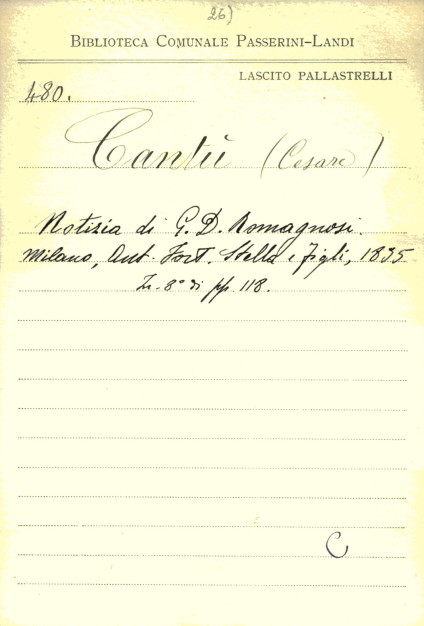 26)
BIBLIOTECA COMUNALE PASSERINI-LANDI
LASCITO PALLASTRELLI
480.
Cantù (Cesare)
Notizia di G. D. Romagnosi.
Milano, Ant. Fort. Stella e figli, 1835
In 8° di pp. 118.
C